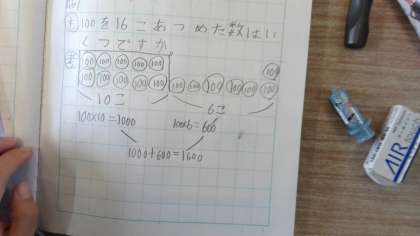 も 100を16こあつめた数はい
くつですか。
考
100 100 100 100 100
100 100 100 100 100 100 100 100 100 100 100
10こ
6こ
100×10=1000
100×6=600
1000+600=1600
AIR